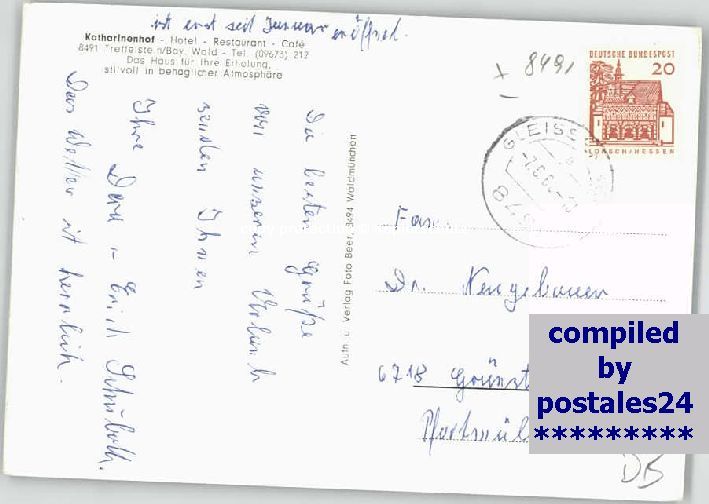 ist erst seit Januar eröffnet.
Katharinenhof - Hotel - Restaurant - Café
8491 Treffelstein/Bay. Wald - Tel. (09673) 212
Das Haus für Ihre Erholung,
stilvoll in behaglicher Atmosphäre
Die besten Grüße
von unserem Urlaub
senden Ihnen
Ihre Dora u. Erich
Das Wetter ist herrlich.
Aufn. u. Verlag Foto Beer, 8494 Waldmünchen
8491
DEUTSCHE BUNDESPOST
20
LORSCH/HESSEN
GLEISSE
Fam.
Dr. Neugebauer
6718 Grünst
compiled
by
postales24
*********
DB